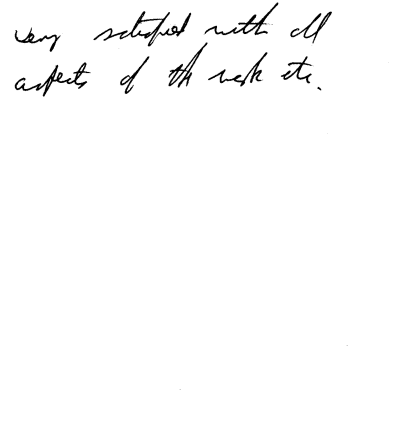 very satisfied with all
aspects of the work etc.